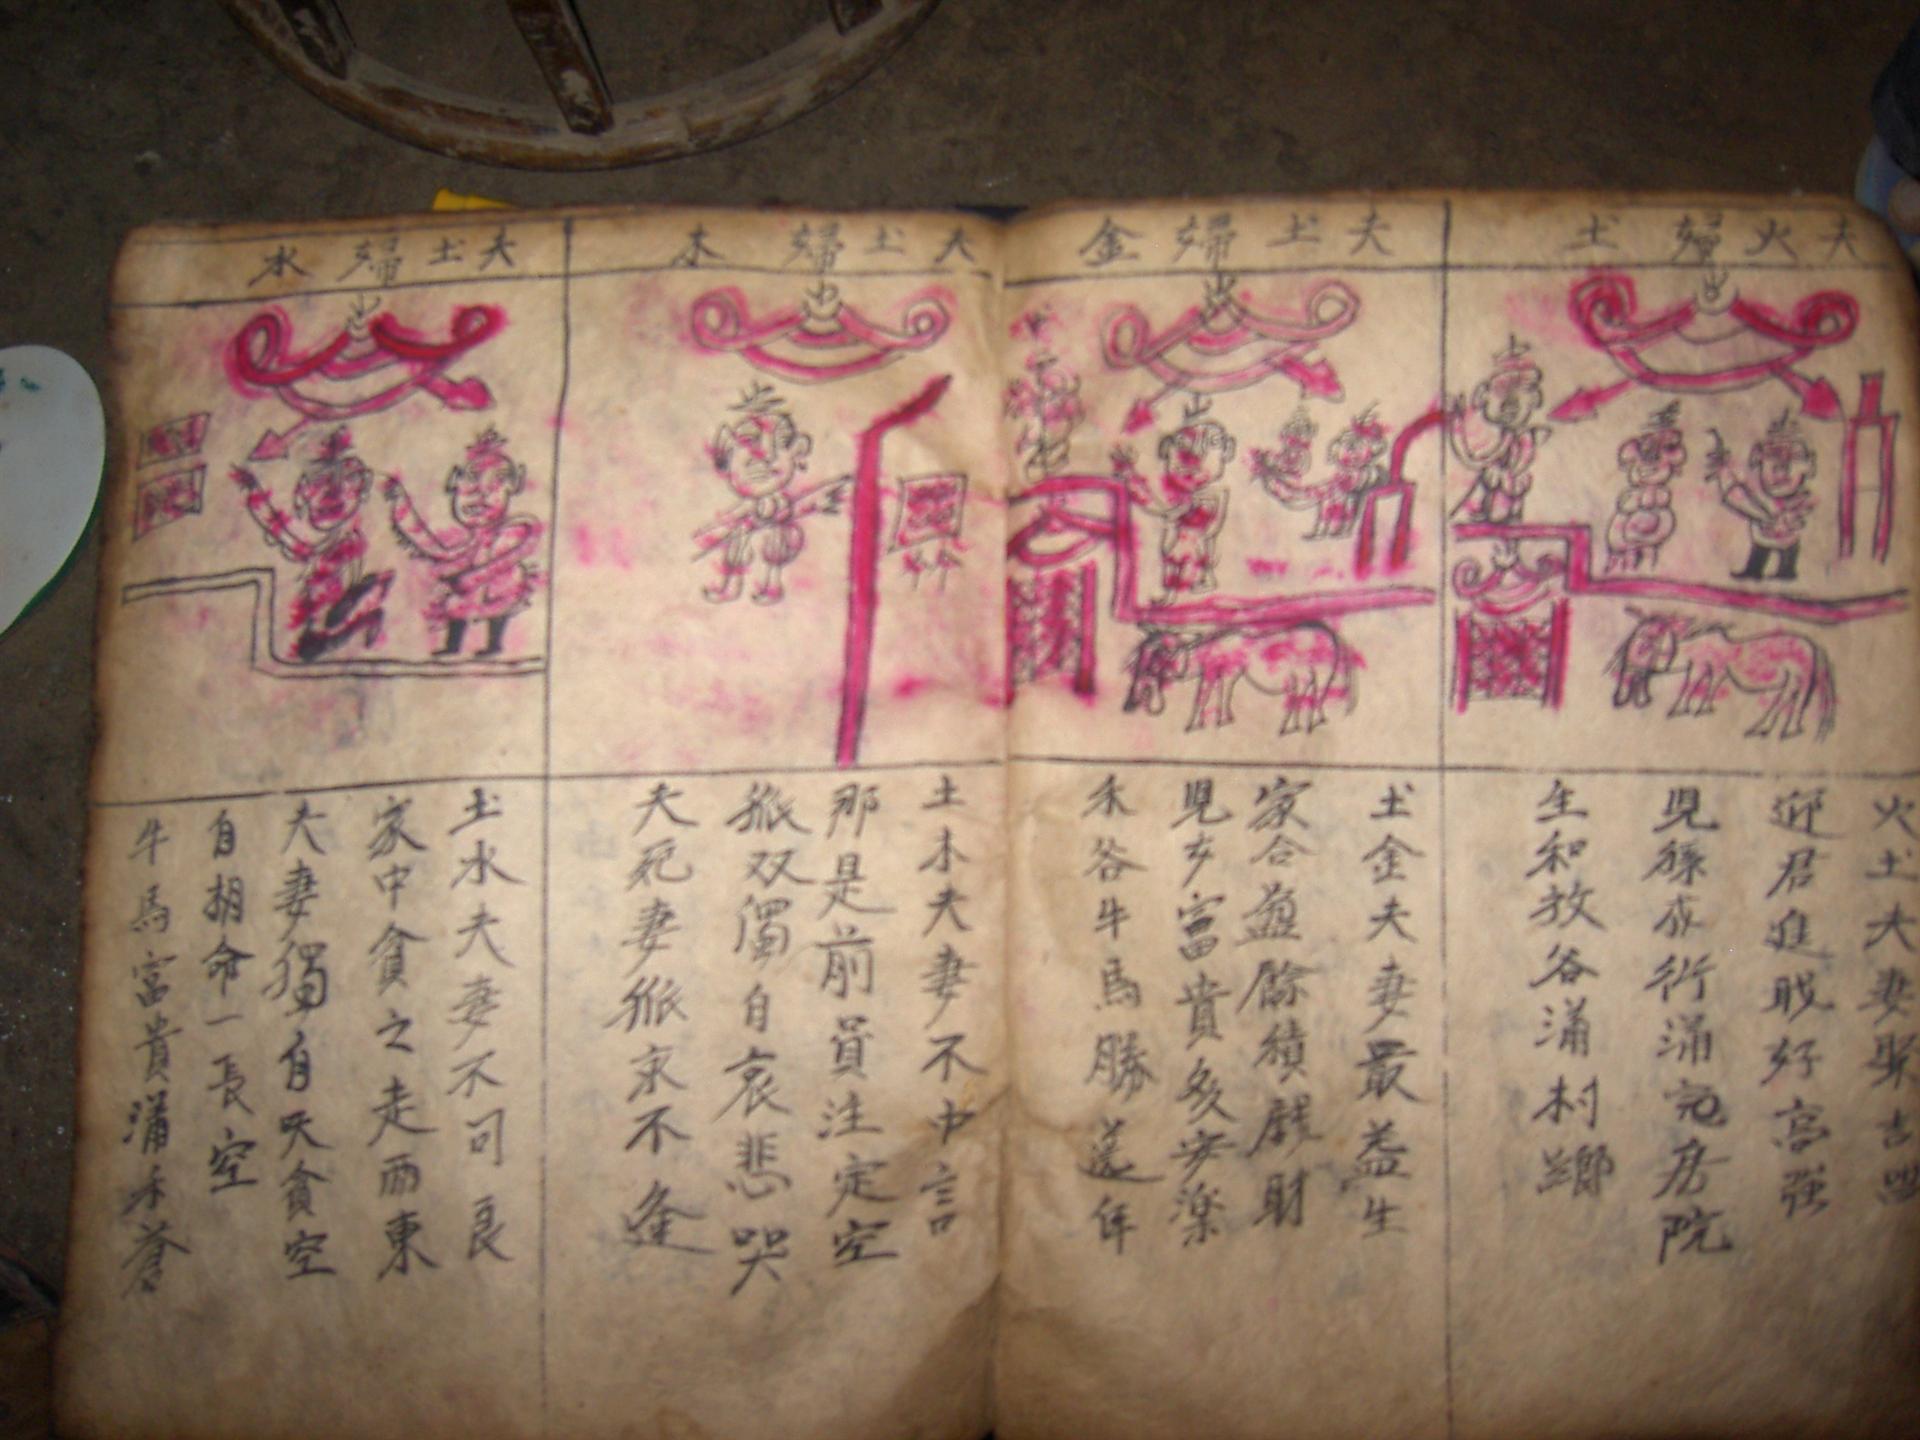 夫火婦土
火土夫妻聚吉
迎君進戝好冨強
児孫成行涌完房院
生和放谷涌村鄉
夫土婦金
土金夫妻最益生
家合盈餘積戝財
児岁富貴多安楽
禾谷牛馬勝送年
夫土婦木
土木夫妻不中言
那是前員注定空
孤双獨自哀悲哭
夫死妻孤求不逢
夫土婦水
土水夫妻不可良
家中貧之走西東
夫妻獨自哭貧空
自胡命一長空
牛馬富貴涌禾蒼